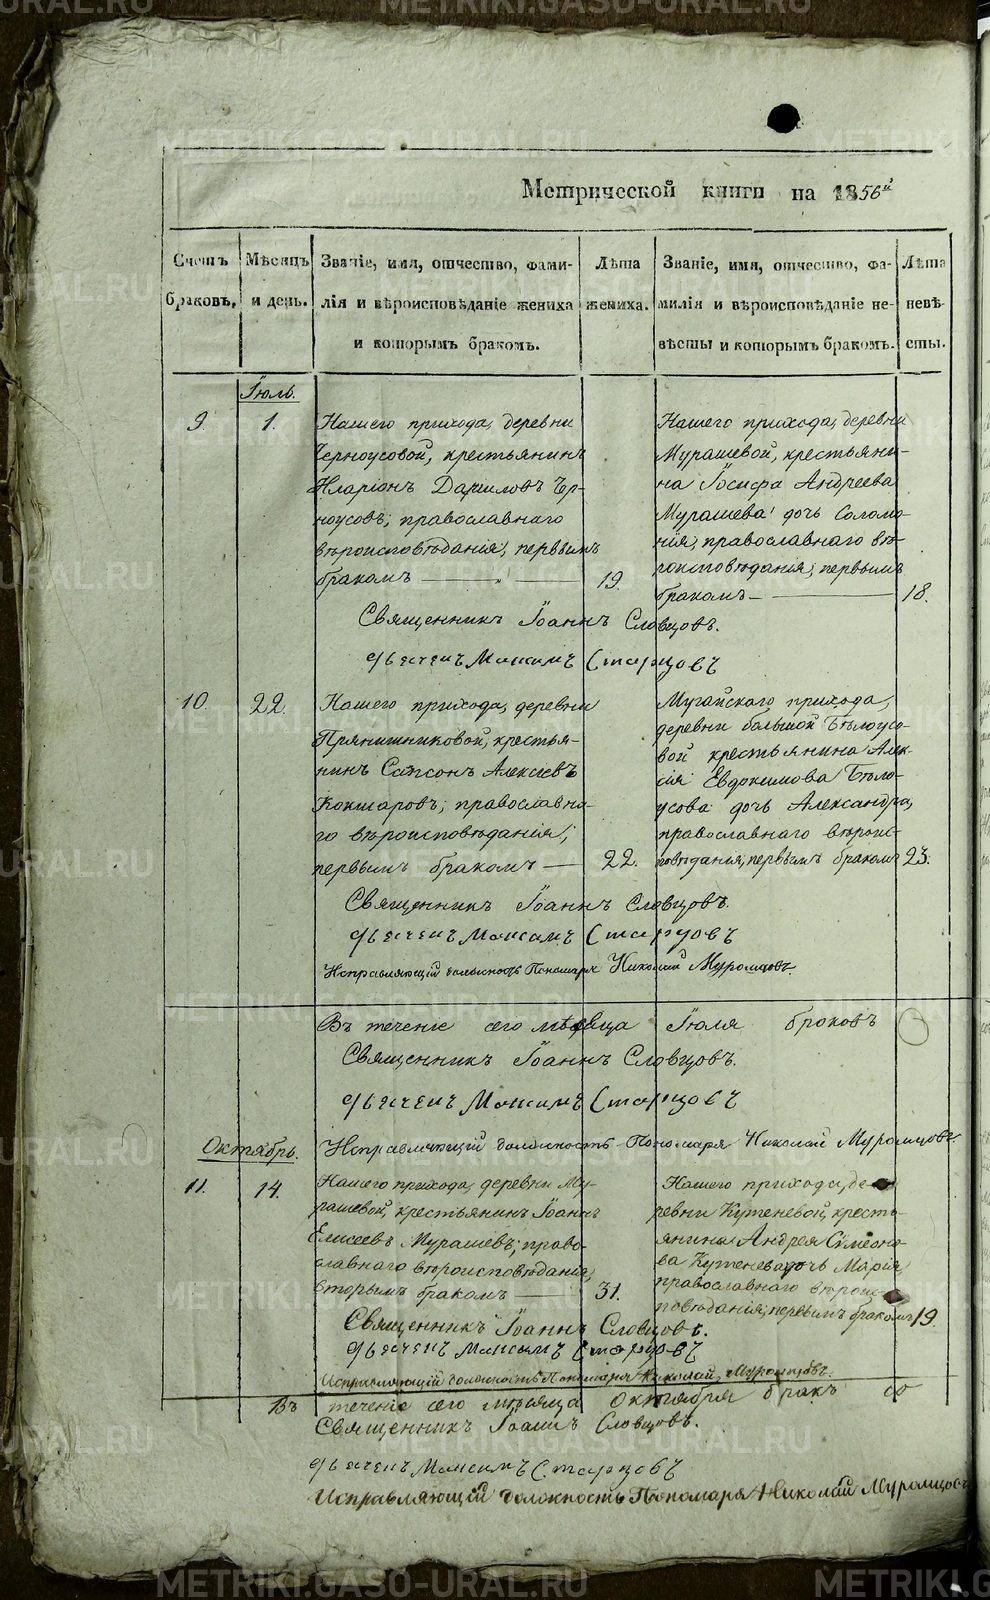 Метрической книги на 1856й
Счетъ браковъ.
Мѣсяцъ и день.
Званіе, имя, отчество, фами-
лія и вѣроисповѣданіе жениха
и которымъ бракомъ.
Лѣта жениха.
Званіе, имя, отчество, фа-
милія и вѣроисповѣданіе не-
вѣсты и которымъ бракомъ.
Лѣта невѣ-
сты.
Іюль.
9. 1.
Нашего прихода, деревни
Черноусовой, крестьянинъ
Иларіонъ Даниловъ Чер-
ноусовъ; православнаго
вѣроисповѣданія; первымъ
бракомъ
19.
Нашего прихода, деревни
Мурашевой, крестьяни-
на Іосифа Андреева
Мурашева дочь Соломо-
нія; православнаго вѣ-
роисповѣданія; первымъ
бракомъ
18.
Священникъ Іоаннъ Словцовъ.
дьячекъ Максимъ Старцовъ
10. 22.
Нашего прихода, деревни
Прянишниковой, крестья-
нинъ Сапсонъ Алексѣевъ
Кокшаровъ; православна-
го вѣроисповѣданія;
первымъ бракомъ
22.
Мугайскаго прихода,
деревни большой Бѣлоусо-
вой крестьянина Алек-
сія Евдокимова Бѣло-
усова дочь Александра,
православнаго вѣроис-
повѣданія; первымъ бракомъ
23.
Священникъ Іоаннъ Словцовъ.
дьячекъ Максимъ Старцовъ
Исправляющій должность Пономаря Николай Муромцовъ.
Въ теченіе сего мѣсяца Іюля браковъ
Священникъ Іоаннъ Словцовъ.
дьячекъ Максимъ Старцовъ
Исправляющій должность Пономаря Николай Муромцовъ.
Октябрь.
11. 14.
Нашего прихода, деревни Му-
рашевой, крестьянинъ Іоаннъ
Елисеевъ Мурашевъ; право-
славнаго вѣроисповѣданія,
вторымъ бракомъ
31.
Нашего прихода, де-
ревни Кутеневой, кресть-
янина Андрея Сѵмеоно-
ва Кутенева дочь Марія,
православнаго вѣроис-
повѣданія; первымъ бракомъ
19.
Священникъ Іоаннъ Словцовъ.
дьячекъ Максимъ Старцовъ
Исправляющій должность Пономаря Николай Муромцовъ.
Въ теченіе сего мѣсяца Октября бракъ
Священникъ Іоаннъ Словцовъ.
дьячекъ Максимъ Старцовъ
Исправляющій должность Пономаря Николай Муромцовъ
METRIKI.GASO-URAL.RU